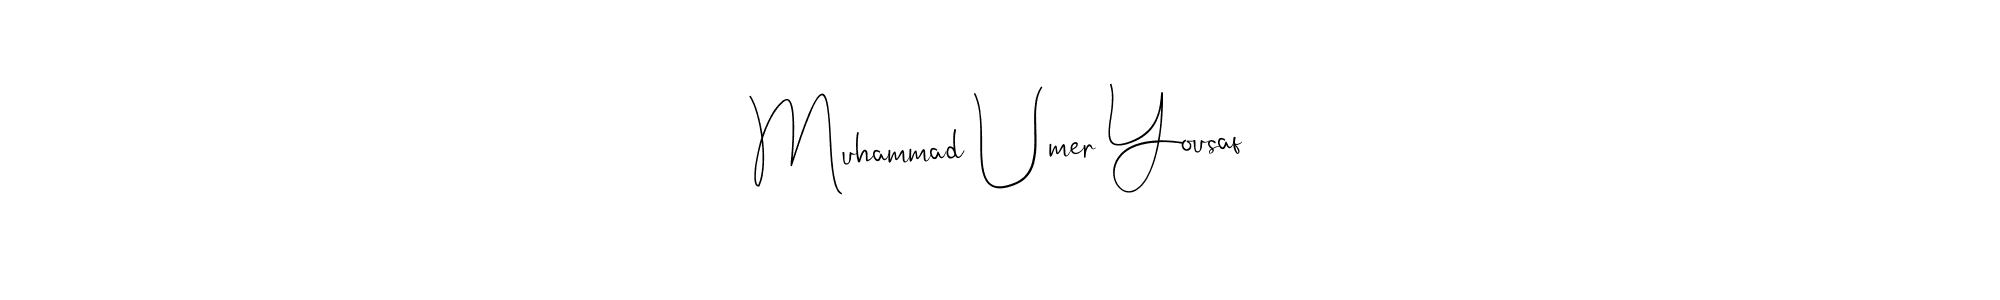 Muhammad Umer Yousaf